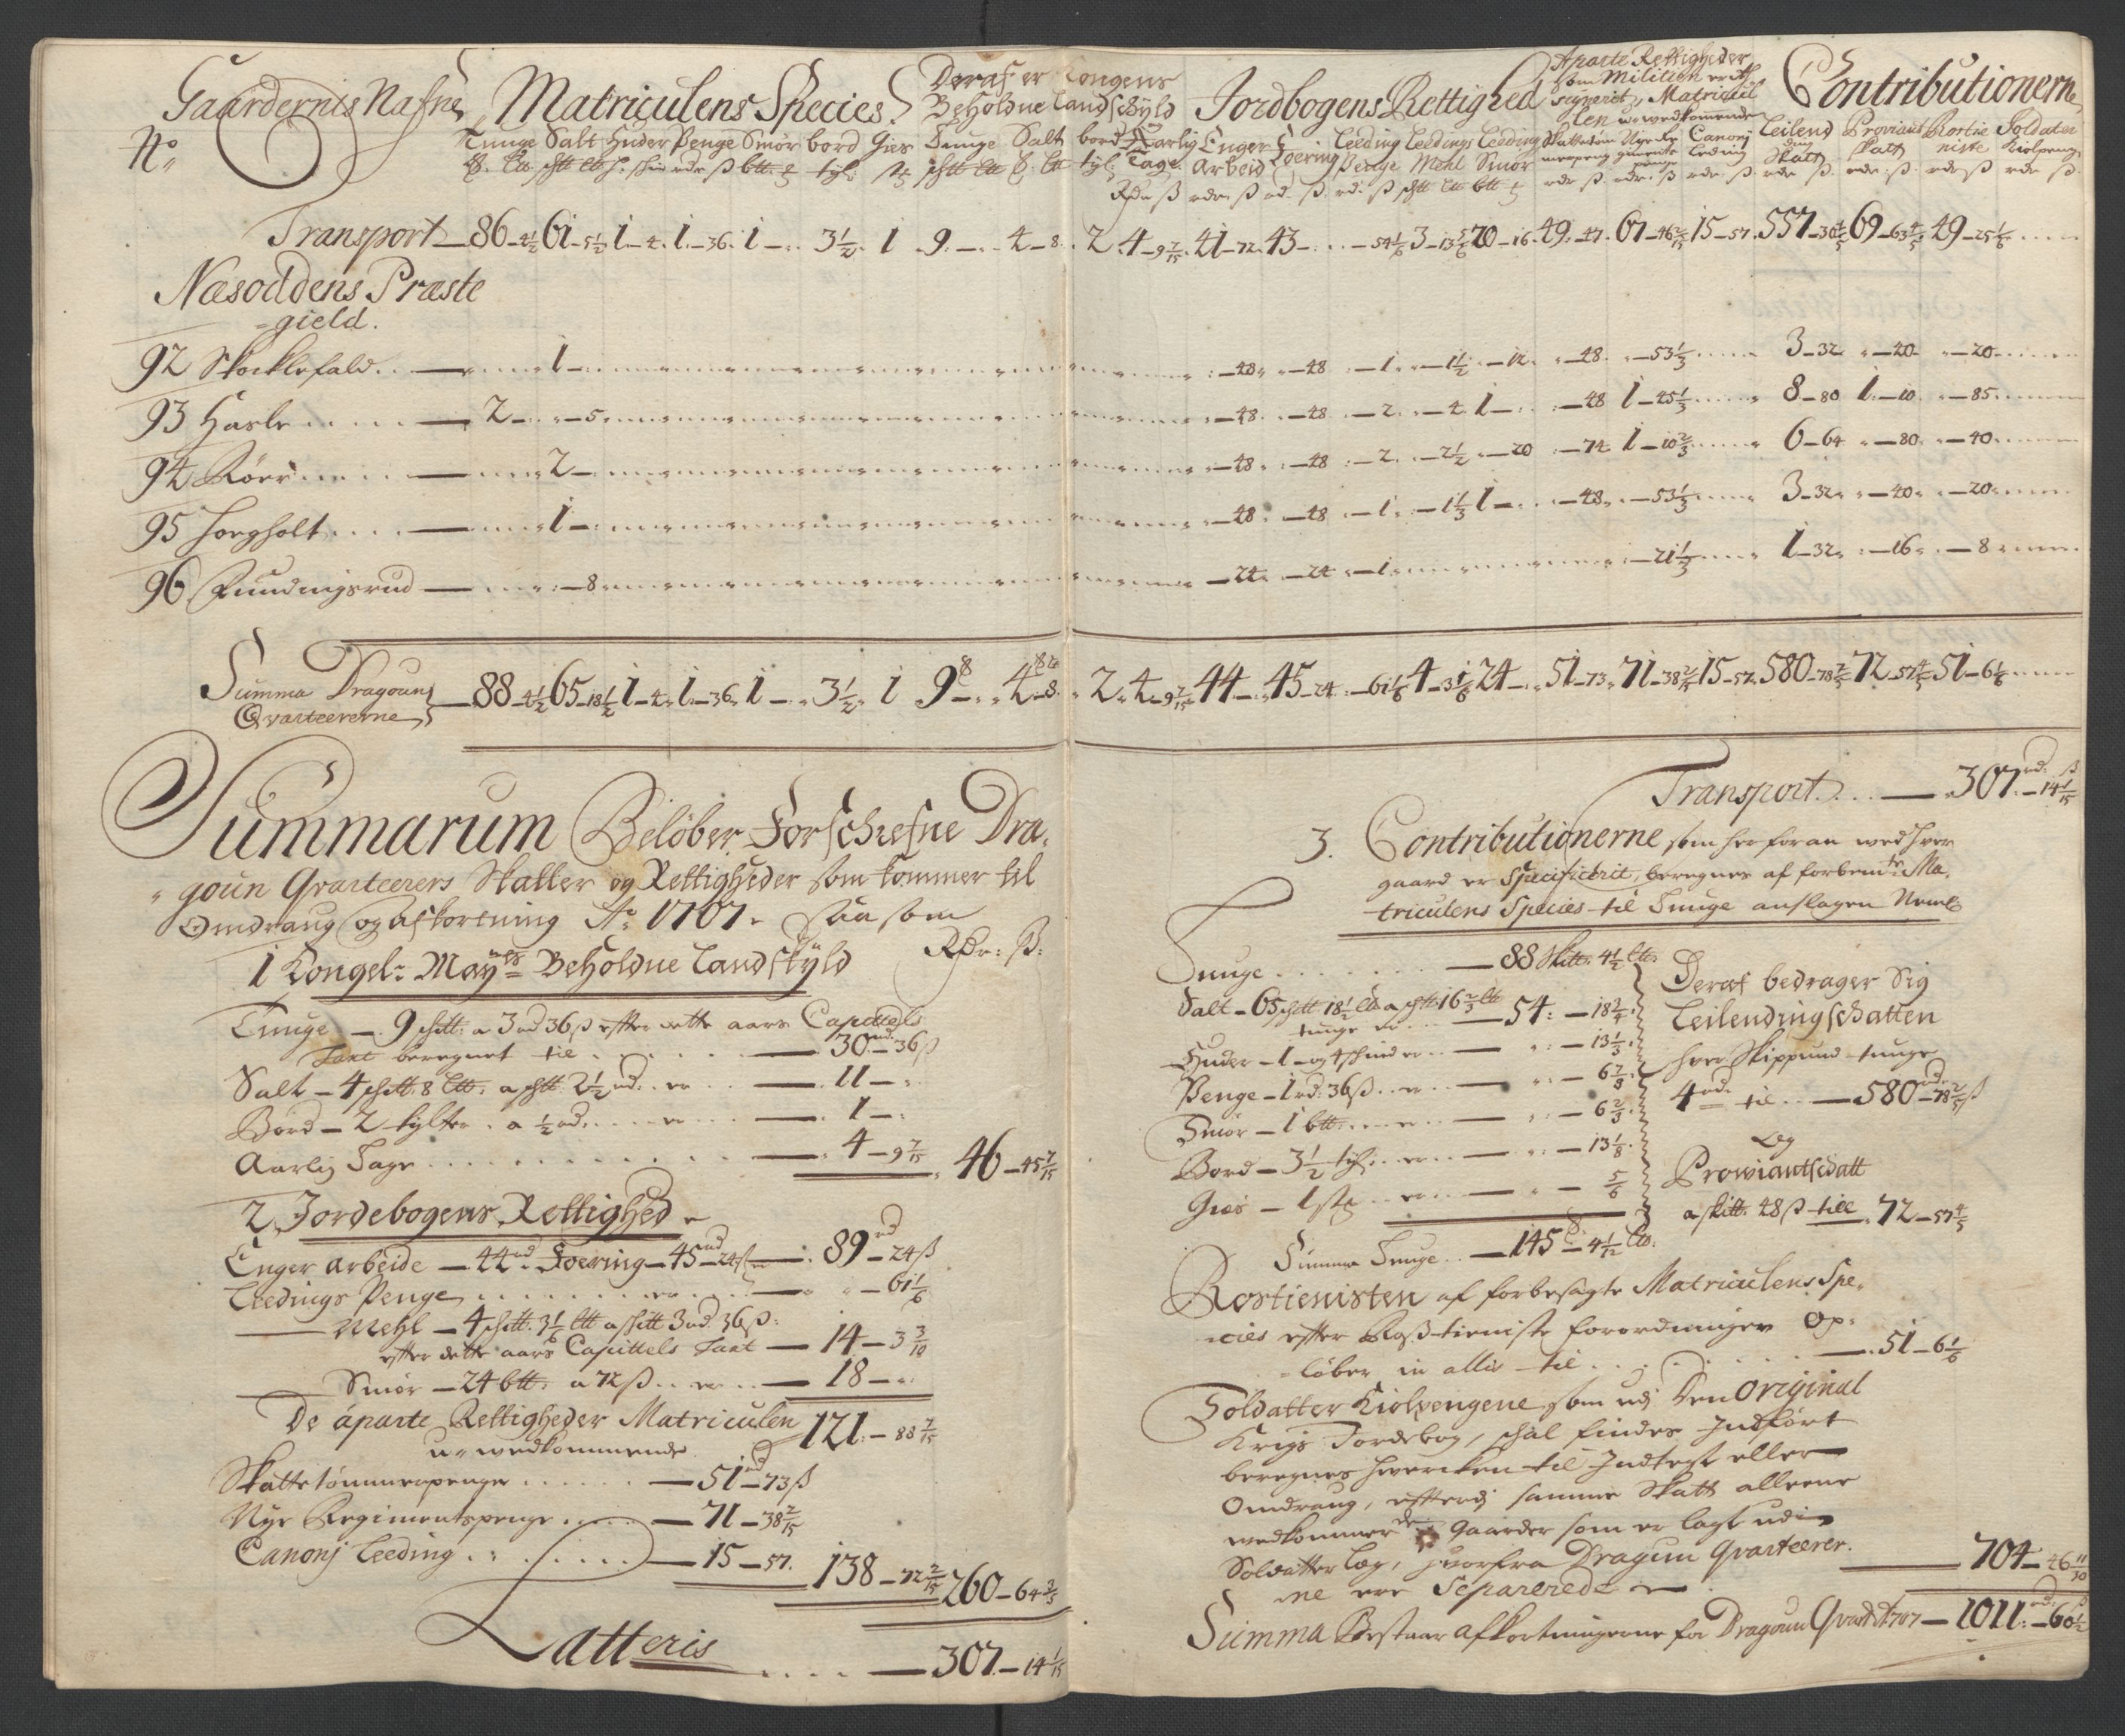 Gaardernis Nafne, Matriculens Species. Deraf er Kongens Beholdne Landskyld Jordbogens Rettighed Aparte Rettigheder som Militien er Assigneret, Matriculen u-wedkommende Contributionerne
No Tunge Salt Huder Penge Smør bord Gies Tunge Salt bord Aarlig Tage. Enger Arbeid Foering Leeding Penge Leedings Mehl Leeding Smør Skattetømmerpeng Nye Re gimente penge Canonj Leding Leilend ding Skatt Proviant skatt Rostie niste Soldater Kiolpeng
Transport — 86 — 4½ 61 — 5½ 1 — 4. 1 — 36. 1 — 3½. 1 . 9. — 4 — 8. 2. 4 — 9 7/15. 41 — 72. 43 — . — 54 1/6 3 — 13 5/6 20 — 16. 49. — 47. 67 — 46 2/15 15 — 57. 557 — 30 2/5 69 — 63 4/5 49 — 25 1/6
Næsoddens Præste
gield.
92 Skocklefald . . — 1 — — 48 — 48 — 1 — 1½ — 12 — 48 — 53 1/3 3 — 32 — 40 — 20
93 Hasle . . . . — 2 — — 5 — 48 — 48 — 2 — 4 1 — — 48 1 — 45 1/3 8 — 80 1 — 10 — 85
94 Röer . . . . — 2 — — 48 — 48 — 2 — 2½ — 20 — 74 1 — 10 2/3 6 — 64 — 80 — 40
95 Torgholt . . . — 1 — — 48 — 48 — 1 — 1 1/3 1 — — 48 — 53 1/3 3 — 32 — 40 — 20
96 Fundingsrud — — 8 — 24 — 24 — 1 — 21 1/3 1 — 32 — 16 — 8
Summa Dragoun
Qvarteererne — 88 — 4½ 65 — 18½ 1 — 4. 1 — 36. 1 — 3½. 1 9 — 4 — 8. 2. 4 — 9 7/15 44 — 45 — 24. — 61 1/6 4 — 3 1/6 24 — 51 — 73. 71 — 38 2/15 15 — 57. 580 — 78 2/5 72 — 57 4/5 51 — 6 1/6
Summarum Beløber Forschrefne Dra-
goun Qvarteerers Skatter og Rettigheder som kommer til
Omdraug og afkortning Ao 1707. Saa som
1 Kongel: Mayts Beholdne Landskyld Rdr: ß:
Tunge — 9 schtt: a 3 rd 36 ß efter dette aars Capittels
Taxt beregnet til . . . — 30 rd — 36 ß
Salt — 4 schtt. 8 Ltt: a schtt 2½ rd. er — 11 —
Bord — 2 tylter . a ½ rd. . . er — 1 —
Aarlig Tage . . . . — 4 — 9 7/15 46 — 45 7/15
2 Jordebogens Rettighed
Enger Arbeide — 44 rd Foering — 45 rd 24 ß — 89 rd — 24 ß
Leedings Penge . . . er . . — 61 1/6
— Mehl — 4 schtt. 3 1/6 Ltt a schtt 3 rd 36 ß:
efter dette aars Capittels Taxt — 14 — 3 3/10
— Smør — 24 btt: a 72 ß . . er . . — 18 —
De aparte Rettigheder Matriculen 121. — 88 7/15
u-wedkommende.
Skattetømmerpenge . . . . — 51 rd — 73 ß
Nye Regimentspenge . . . — 71 — 38 2/15
Canonj Leeding . . . . . — 15 — 57. 138 — 72 2/15 260 — 64 3/5
Latteris . . . . — 307 — 14 1/15
Transport . . . — 307 rd: — 14 1/15 ß
3. Contributionerne som herforan wed hver
gaard er Specificerit, beregnes af forbemte Ma-
triculens Species til Tunge anslagen Neml
Tunge . . . . . — 88 Skttr 4½ Ltt:
Salt — 65 schtt 18½ Ltt a schtt 16 2/3 Ltt
tunge er . . — 54: — 18 3/4.
Huder — 1 — og 4 schind er . . — — 13 1/3.
Penge — 1 rd: 36 ß . . er — — 6 7/8.
Smør — 1 btt: . . . er . . — — 6 2/3
Bord — 3½ tyl: . . er . . — — 13 1/8.
Gies — 1 st . . er . . — — 5/6
Summa Tunge . . — 145 — 4 1/12 Ltt.
Deraf bedrager Sig
Leilendingschatten
hver Skippund tunge
4 rd: til . . — 580 rd — 78 2/5 ß
Og
Prowiantschatt
a sktt. 48 ß till 72 — 57 4/5
Rostienisten af forbesagte Matriculens Spe-
cies efter Ross-tieniste forordningen op-
løber in alles til . . . . — 51 — 6 1/6
Soldatter Kiolpengene som udj Den Original
Krigs Jordebog, schal findes Indført
beregnes hwercken til Indtegt eller
Omdraug, efterdj samme Skatt alleene
wedkommer de Gaarder som er lagt udi
Soldatter Læg, hworfra Dragun Qvarteerer-
ne ere Separerede — 704 — 46 11/30
Summa Bestaar afkortningerne for Dragoun Qvart: Ao 1707 — 1011: rd: — 60½ ß